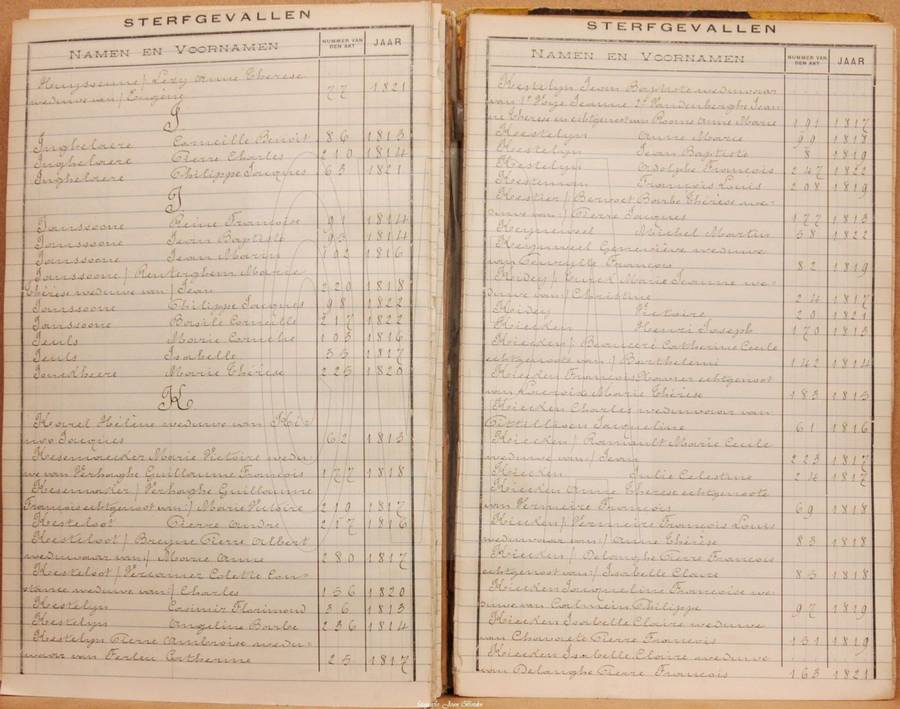 STERFGEVALLEN
NAMEN EN VOORNAMEN NUMMER VAN DEN AKT JAAR
Huysseune / Lezy Anne Therese
weduwe van / Eugène 77 1821
I
Inghelaere Corneille Benoit 86 1813
Inghelaere Pierre Charles 210 1814
Inghelaere Philippe Jacques 63 1821
J
Janssoone Reine Françoise 91 1814
Janssoone Jean Baptiste 93 1814
Janssoone Jean Marin 102 1816
Janssoone / Renterghem Marie
Thérèse weduwe van / Jean 220 1818
Janssoone Philippe Jacques 98 1822
Janssoone Basile Corneille 217 1822
Jeuls Marie Cornelie 103 1816
Jeuls Isabelle 33 1817
Jonckheere Marie Thérèse 225 1820
K
Karel Hélène weduwe van
Jacques 62 1813
Kesemaecker Marie Victoire wedu-
we van Verhaeghe Guillaume François 177 1818
Kesemaeker / Verhaeghe Guillaume
François echtgenoot van / Marie Victoire 210 1817
Kesteloot Pierre André 217 1816
Kesteloot / Bruyne Pierre Albert
weduwaar van / Marie Anne 280 1817
Kesteloot / Vercamer Colette Con-
stance weduwe van / Charles 156 1820
Kestelyn Casimir Florimond 36 1813
Kestelyn Angeline Barbe 236 1814
Kestelyn Pierre Ambroise wedu-
waar van Ferlen Catherine 25 1817
STERFGEVALLEN
NAMEN EN VOORNAMEN NUMMER VAN DEN AKT JAAR
Kestelyn Jean Baptiste weduwaar
van 1° Jeanne 2° Vandenberghe Jean-
ne Thérèse en echtgenoot van Anne Marie 191 1817
Kestelyn Anne Marie 99 1818
Kestelyn Jean Baptiste 8 1819
Kestelyn Adolphe François 247 1822
Kesteman François Louis 208 1819
Kestier / Bervoet Barbe Thérèse we-
duwe van / Pierre Jacques 177 1813
Keyneweel Michel Martin 58 1822
Keynweel Geneviève weduwe
van François 82 1819
Kidey / Marie Jeanne we-
duwe van / Christine 24 1817
Kidey Victoire 20 1821
Kieeken Henri Joseph 170 1813
Kieeken / Catherine Cecile
echtgenoote van / Barthelemi 142 1814
Kieeken François Xavier echtgenoot
van Marie Thérèse 183 1815
Kieeken Charles weduwaar van
Jacqueline 61 1816
Kieeken / Ramault Marie Cecile
weduwe van / Jean 223 1817
Kieeken Julie Celestine 24 1817
Kieeken Anne Thérèse echtgenoote
van Vermeire François 69 1818
Kieeken / Vermeire François Louis
weduwaar van / Anne Thérèse 83 1818
Kieeken / Delanghe Pierre François
echtgenoot van / Isabelle Claire 85 1818
Kieeken Jacqueline Françoise we-
duwe van Philippe 97 1819
Kieeken Isabelle Claire weduwe
van Pierre François 131 1819
Kieeken Isabelle Claire weduwe
van Delanghe Pierre François 163 1821